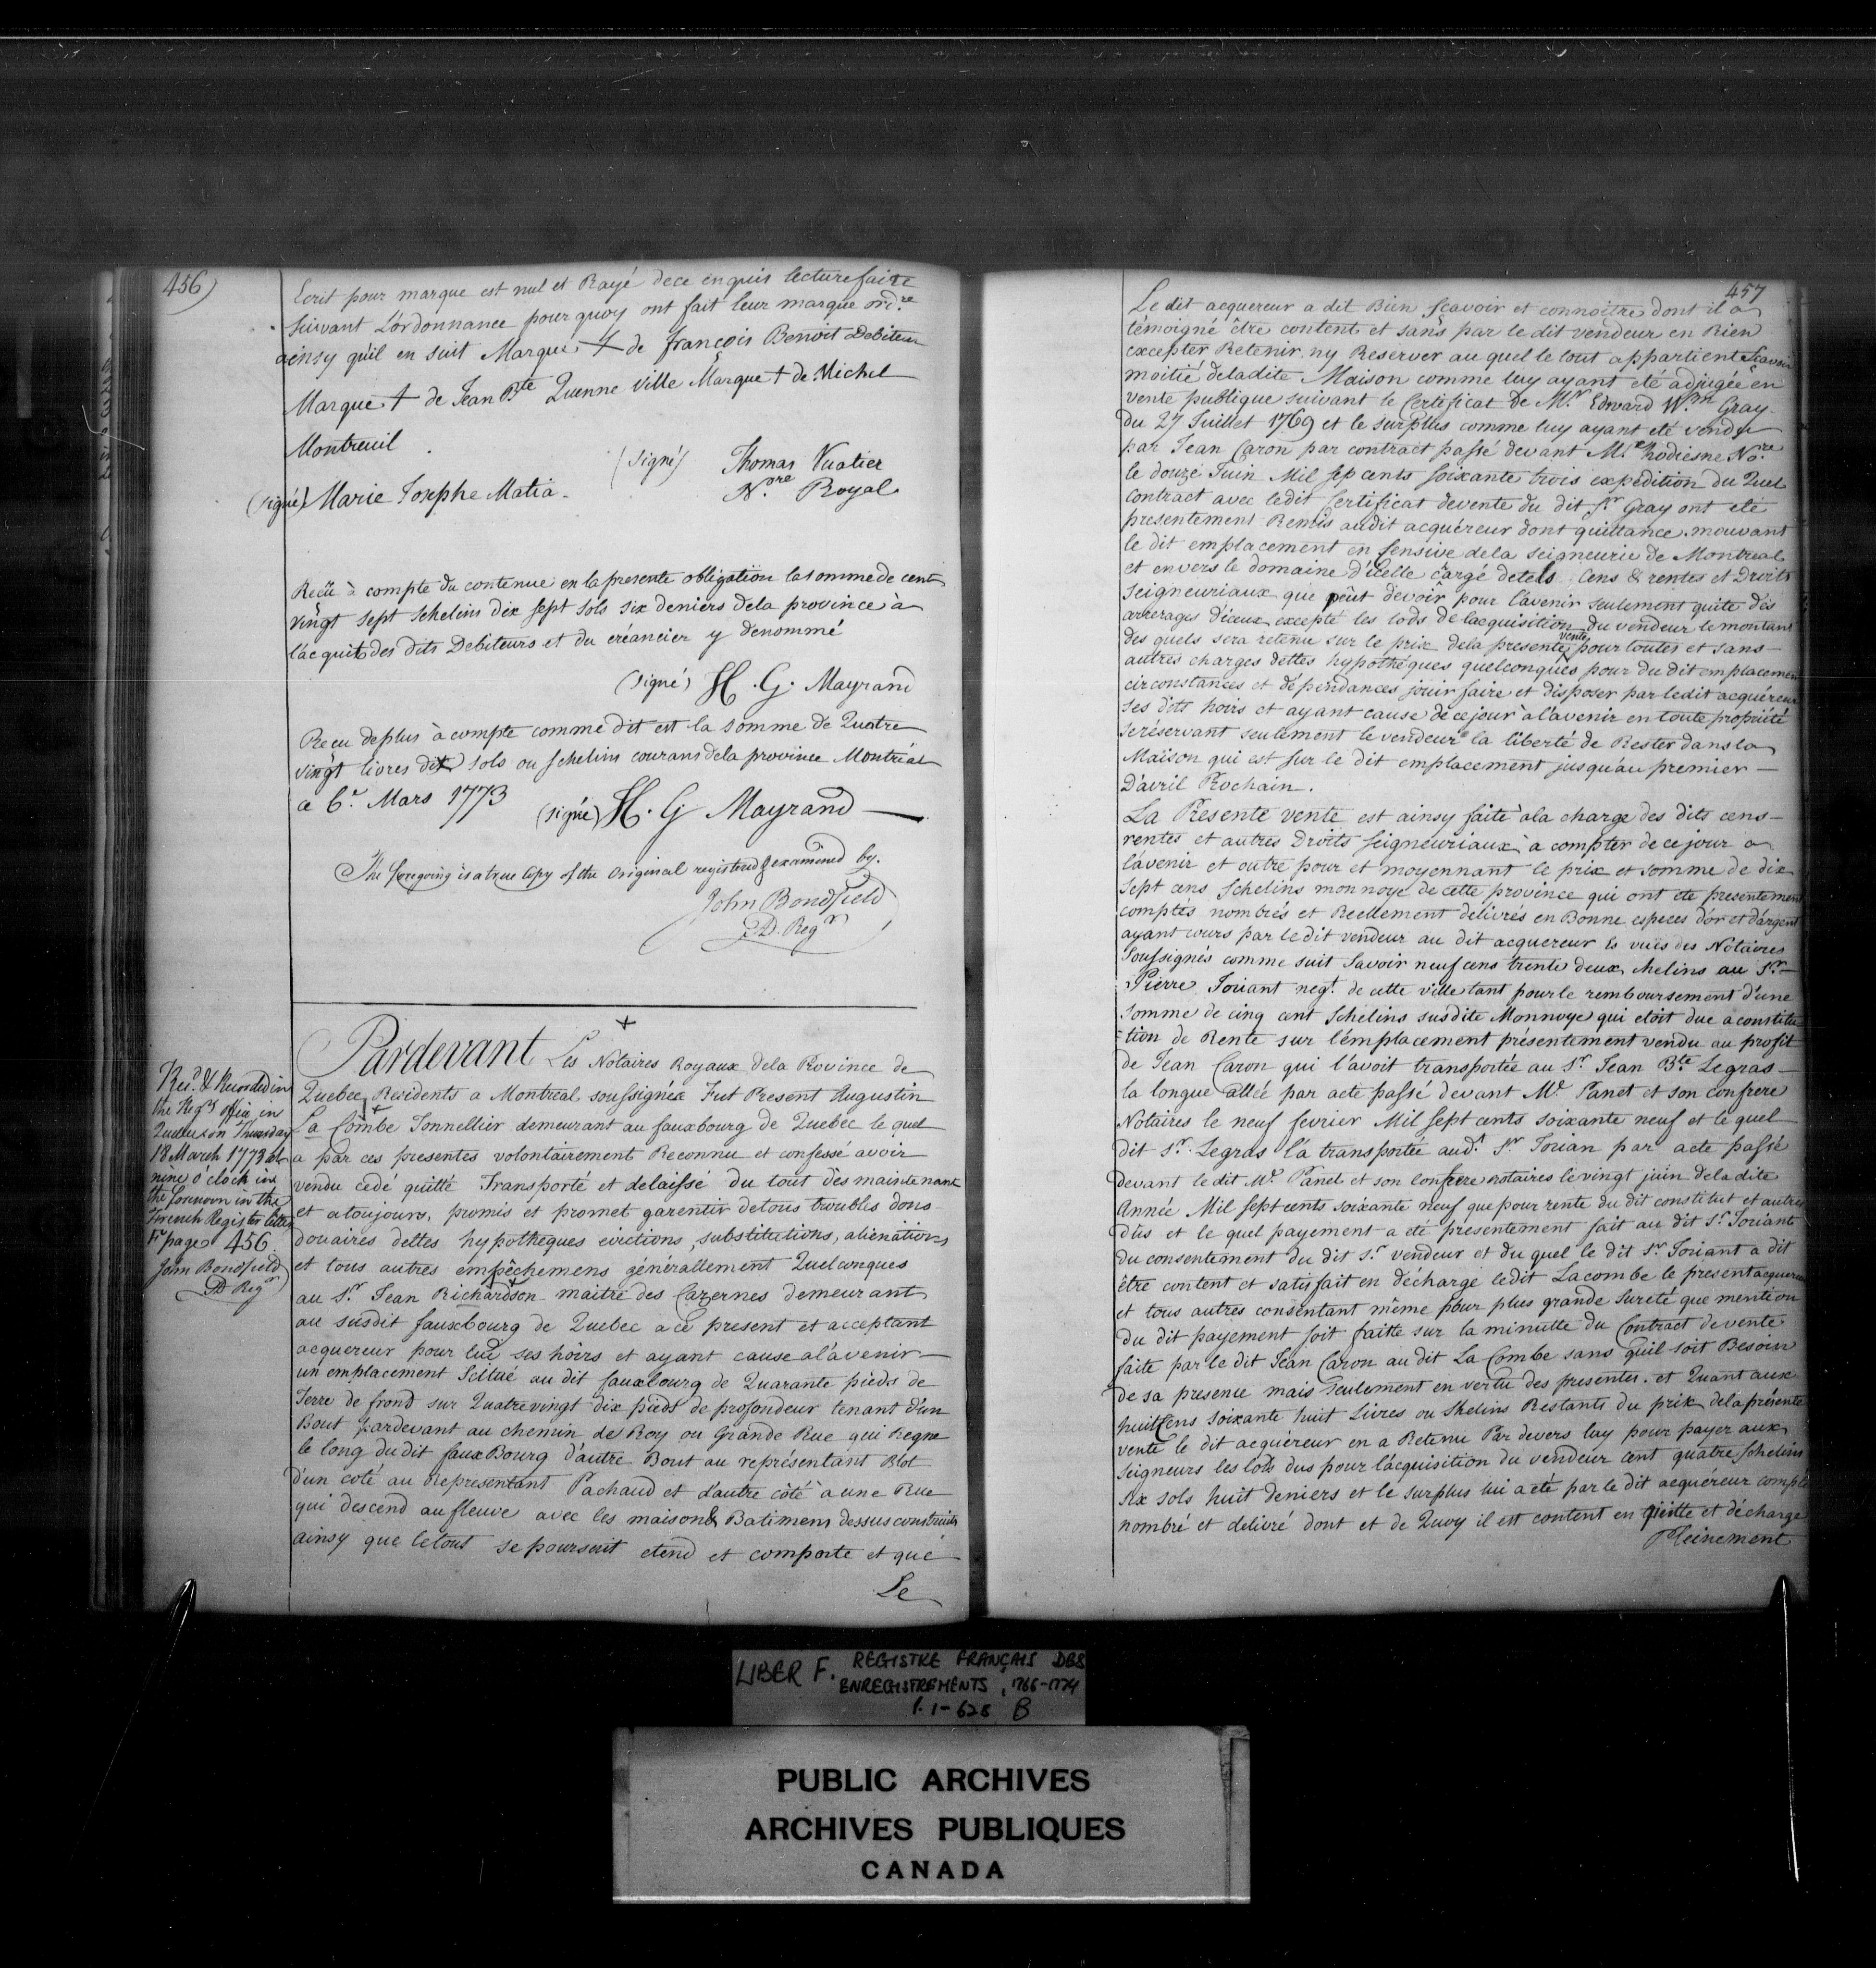 456)
Ecrit pour marque est nul et Rayé de ce enquis lecture faite
suivant L'ordonnance pour quoy ont fait leur marque ord.re
ainsy qu'il en suit Marque † de françois Benoit Debiteur
Marque † de Jean Bte Quenne ville Marque † de Michel
Montreuil
(signé) Thomas Vuatier
N.re Royal
(signé) Marie Josephe Matia.
Recü à compte du contenue en la presente obligation la somme de cent
vingt sept schelins dix sept sols six deniers dela province à
l'acquit des dits Debiteurs et du créancier y denommé
(signé) H. G. Mayrand
Recu deplus à compte comme dit est la somme de Quatre
vingt livres dix sols ou schelins courans dela province Montréal
a 6.r Mars 1773 (signé) H. G Mayrand
The foregoing is a true Copy of the Original registered & examined by.
John Bondfield
D. Regr
Rec.d & Recorded in
the Reg.rs office in
Quebec on Thursday
18 March 1773 at
nine o'clock in
the forenoon in the
French Register letter
Fr page 456
John Bondfield
D Regr
Pardevant Les Notaires Royaux dela Province de
Quebec Residents a Montreal soussignés Fut Present Augustin
La Combe Tonnellier demeurant au fauxbourg de Quebec le quel
a par ces presentes volontairement Reconnu et confessé avoir
vendu cedé quitté Transporté et delaissé du tout dès maintenant
et a toujours, promis et promet garentir detous troubles dons
douaires dettes hypotheques evictions, substitutions, alienations
et tous autres empêchemens générallement Quelconques
au S.r Jean Richardson maitre des Cazernes demeurant
au susdit fauxbourg de Quebec a ce present et acceptant
acquereur pour lui ses hoirs et ayant cause a l'avenir
un emplacement Scitué au dit fauxbourg de Quarante pieds de
Terre de frond sur Quatrevingt dix pieds de profondeur tenant d'un
Bout pardevant au chemin de Roy ou Grande Rue qui Regne
le long du dit faux Bourg d'autre Bout au représentant Blot
d'un coté au Representant Pachaud et d'autre côté à une Rue
qui descend au fleuve avec les maison & Batimens dessus construits
ainsy que le tout se poursuit etend et comporte et que
Le
457
Le dit acquereur a dit Bien sçavoir et connoitre dont il a
témoigné être content et sans par le dit vendeur en Rien
excepter Retenir ny Reserver au quel le tout appartient Scavoir
moitié deladite Maison comme luy ayant eté adjugée en
vente publique suivant le Certificat de M.r Edward W.m Gray
du 27 Juillet 1769 et le surplus comme luy ayant eté vendu
par Jean Caron par contract passé devant M.e hodiesne No.re
le douze Juin Mil sep cents soixante trois expedition du Quel
Contract avec ledit Certificat de vente du dit S.r Gray ont eté
presentement Remis audit acquéreur dont quittance. mouvant
le dit emplacement en Censive dela seigneurie de Montreal
et envers le domaine d'icelle cargé detels Cens & rentes et Droits
seigneuriaux que peût devoir pour l'avenir seulement quite dés
arrerages d'iceux excepté les lods de lacquisition du vendeur le montant
des quels sera retenu sur le prix dela presente vente pour toutes et sans
autres charges dettes hypothéques quelconques pour du dit emplacement
circonstances et dépendances jouir faire et disposer par ledit acquéreur
ses dits hoirs et ayant cause de ce jour à l'avenir en toute propriété
se réservant seulement le vendeur la liberté de Rester dans la
Maison qui est sur le dit emplacement jusqu'au premier
D'avril Prochain.
La Presente vente est ainsy faite à la charge des dits cens
rentes et autres Droits seigneuriaux à compter de ce jour a
l'avenir et outre pour et moyennant le prix et somme de dix
sept cens schelins monnoye de cette province qui ont eté presentement
comptés nombrés et Reellement délivrés en Bonne especes d'or et d'argent
ayant cours par ledit vendeur au dit acquereur Es vuës des Notaires
soussignés comme suit Savoir neuf cens trente deux chelins au S.r
Pierre Joüant neg.t de cette ville tant pour le remboursement d'une
somme de cinq cent Schelins susdite Monnoye qui etoit due a constitu
tion de Rente sur l'emplacement présentement vendu au profit
de Jean Caron qui l'avoit transportée au S.r Jean B.te Legras
la longue allée par acte passé devant M.e Panet et son confrere
Notaires le neuf fevrier Mil sept cents soixante neuf et le quel
dit S.r Legras l'a transportée aud.t S.r Joüan par acte passé
Devant ledit M.e Panet et son confrere notaires le vingt juin deladite
Année Mil sept cents soixante neuf que pour rente du dit constitut et autres
dûs et le quel payement a eté presentement fait au dit S.r Joüant
du consentement du dit S.r vendeur et du quel le dit S.r Joüant a dit
être content et satisfait en décharge ledit Lacombe le present acquereur
et tous autres consentant même pour plus grande Sureté que mention
du dit payement soit faitte sur la minutte du Contract de vente
faite par le dit Jean Caron au dit La Combe sans qu'il soit Besoin
de sa presence mais seulement en vertu des presentes. et Quant aux
huit Cens soixante huit Livres ou Shelins Restants du prix dela présente
vente le dit acquéreur en a Retenu Par devers luy pour payer aux
seigneurs les lods dus pour l'acquisition du vendeur cent quatre schelins
six sols huit deniers et le surplus lui a eté par le dit acquéreur compté
nombré et delivré dont et de Quoy il est content en quitte et décharge
Pleinement
LIBER F. REGISTRE FRANÇAIS DES
ENREGISTREMENTS, 1766-1774
P. 1-628 B
PUBLIC ARCHIVES
ARCHIVES PUBLIQUES
CANADA